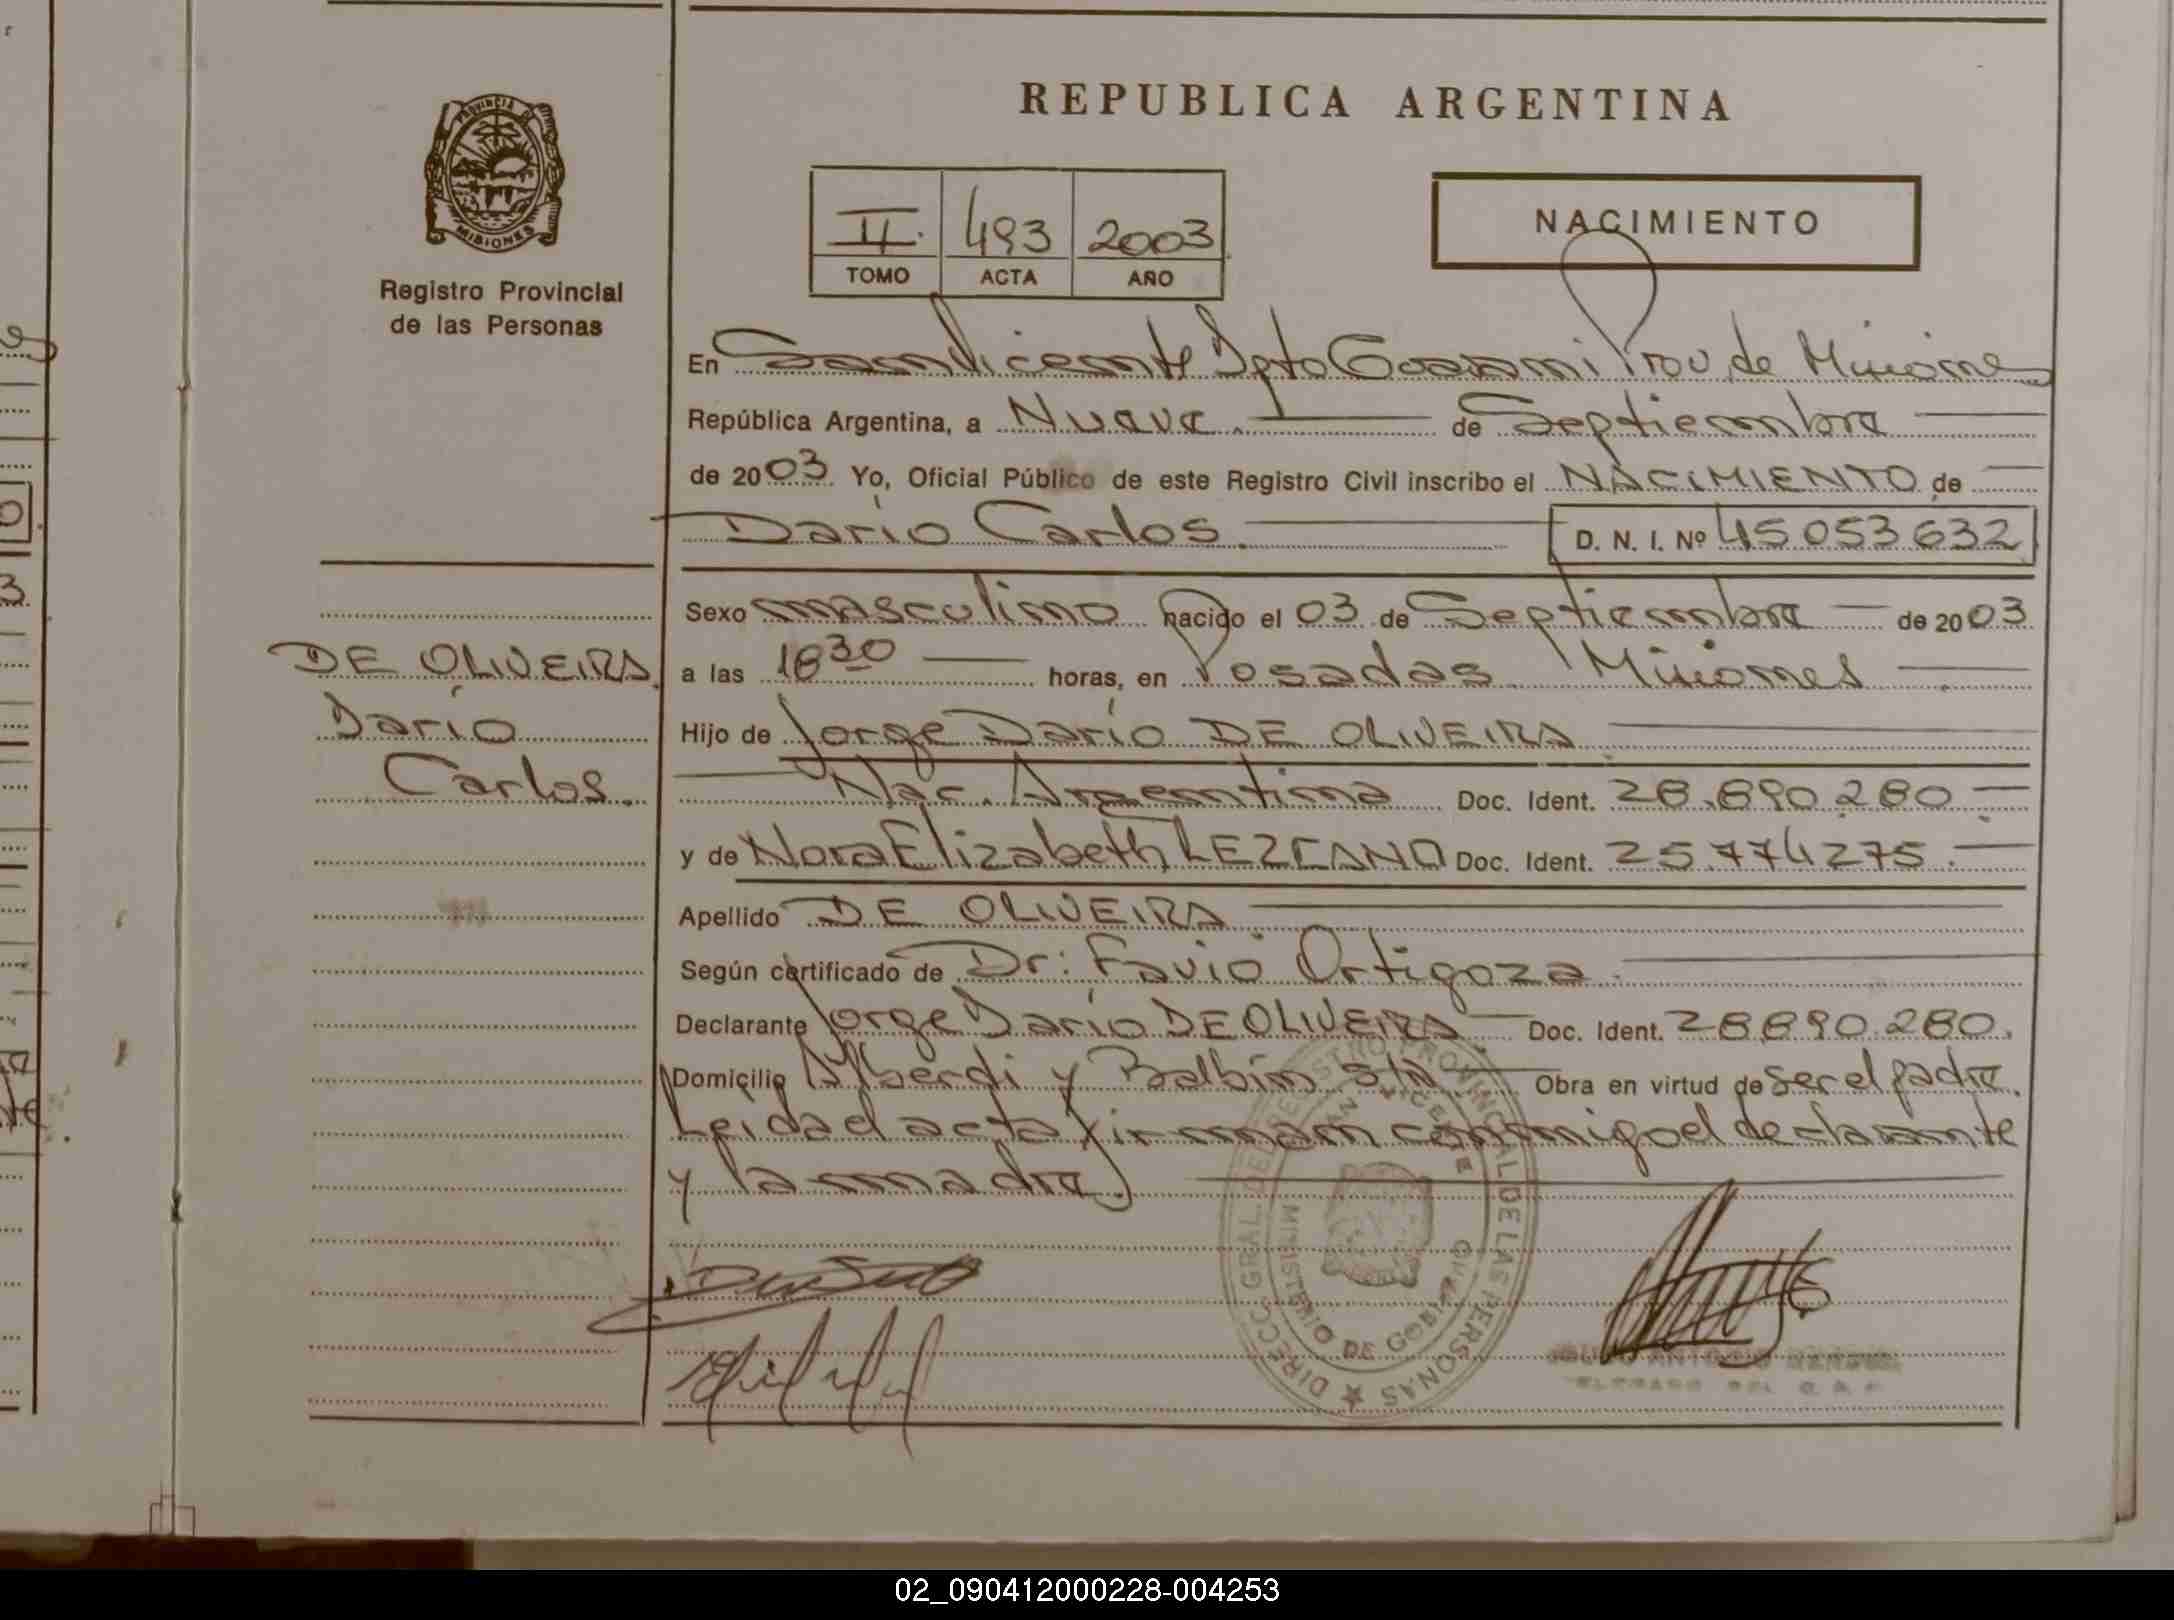 PROVINCIA DE
MISIONES
Registro Provincial
de las Personas
DE OLIVEIRA
Darío
Carlos.
REPUBLICA ARGENTINA
II. 493 2003
TOMO ACTA AÑO
NACIMIENTO
En San Vicente Dpto Guaraní Prov. de Misiones
República Argentina, a Nueve. de Septiembre
de 2003 Yo, Oficial Público de este Registro Civil inscribo el NACIMIENTO de
Darío Carlos. D. N. I. Nº 45 053 632
Sexo masculino nacido el 03 de Septiembre de 2003
a las 18 30 horas, en Posadas Misiones
Hijo de Jorge Darío DE OLIVEIRA
Nac. Argentina Doc. Ident. 28.890.280
y de Nora Elizabeth LEZCANO Doc. Ident. 25.774275.
Apellido DE OLIVEIRA
Según certificado de Dr: Favio Ortigoza.
Declarante Jorge Darío DE OLIVEIRA Doc. Ident. 28890.280.
Domicilio Alberdi y Balbín s/n Obra en virtud de ser el padre.
Leida el acta firman conmigo el declarante
y la madre.
DIRECC. GRAL. DEL REGISTRO PROVINCIAL DE LAS PERSONAS
SAN VICENTE
MINISTERIO DE GOBIERNO
ANTONIO
02_090412000228-004253